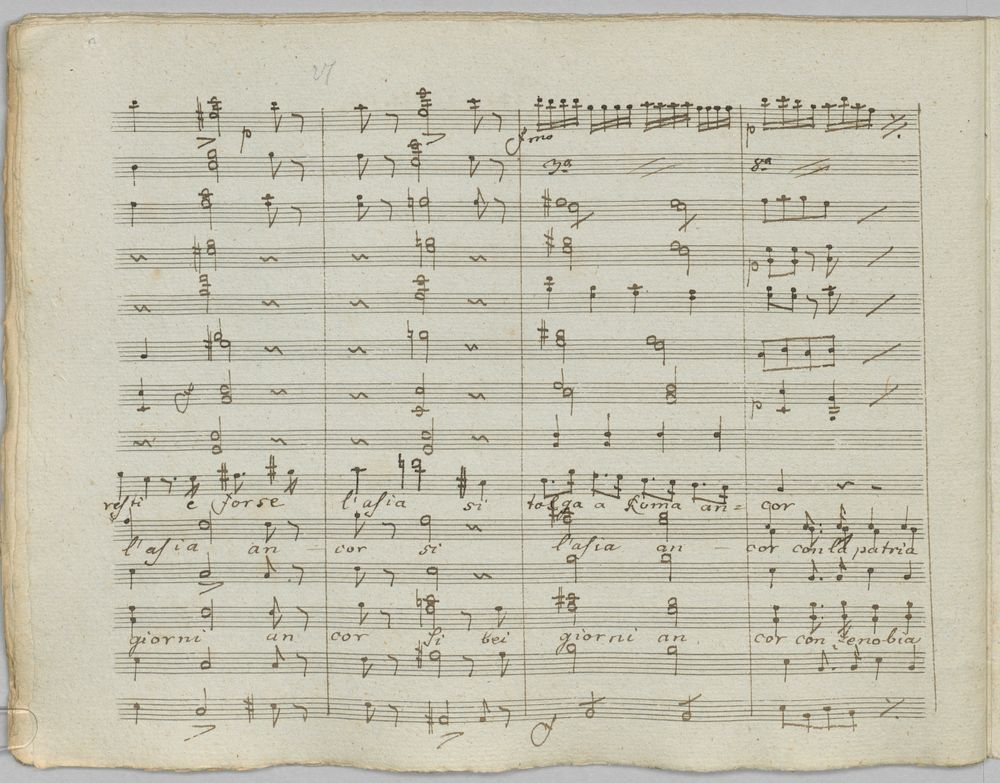 27
p
fmo
p
3ª
8ª
p
f
p
resti e forse l'asia si tolga a Roma an= cor
l'asia an cor si l'asia an – cor con la patria
giorni an cor si bei giorni an cor con Zenobia
f